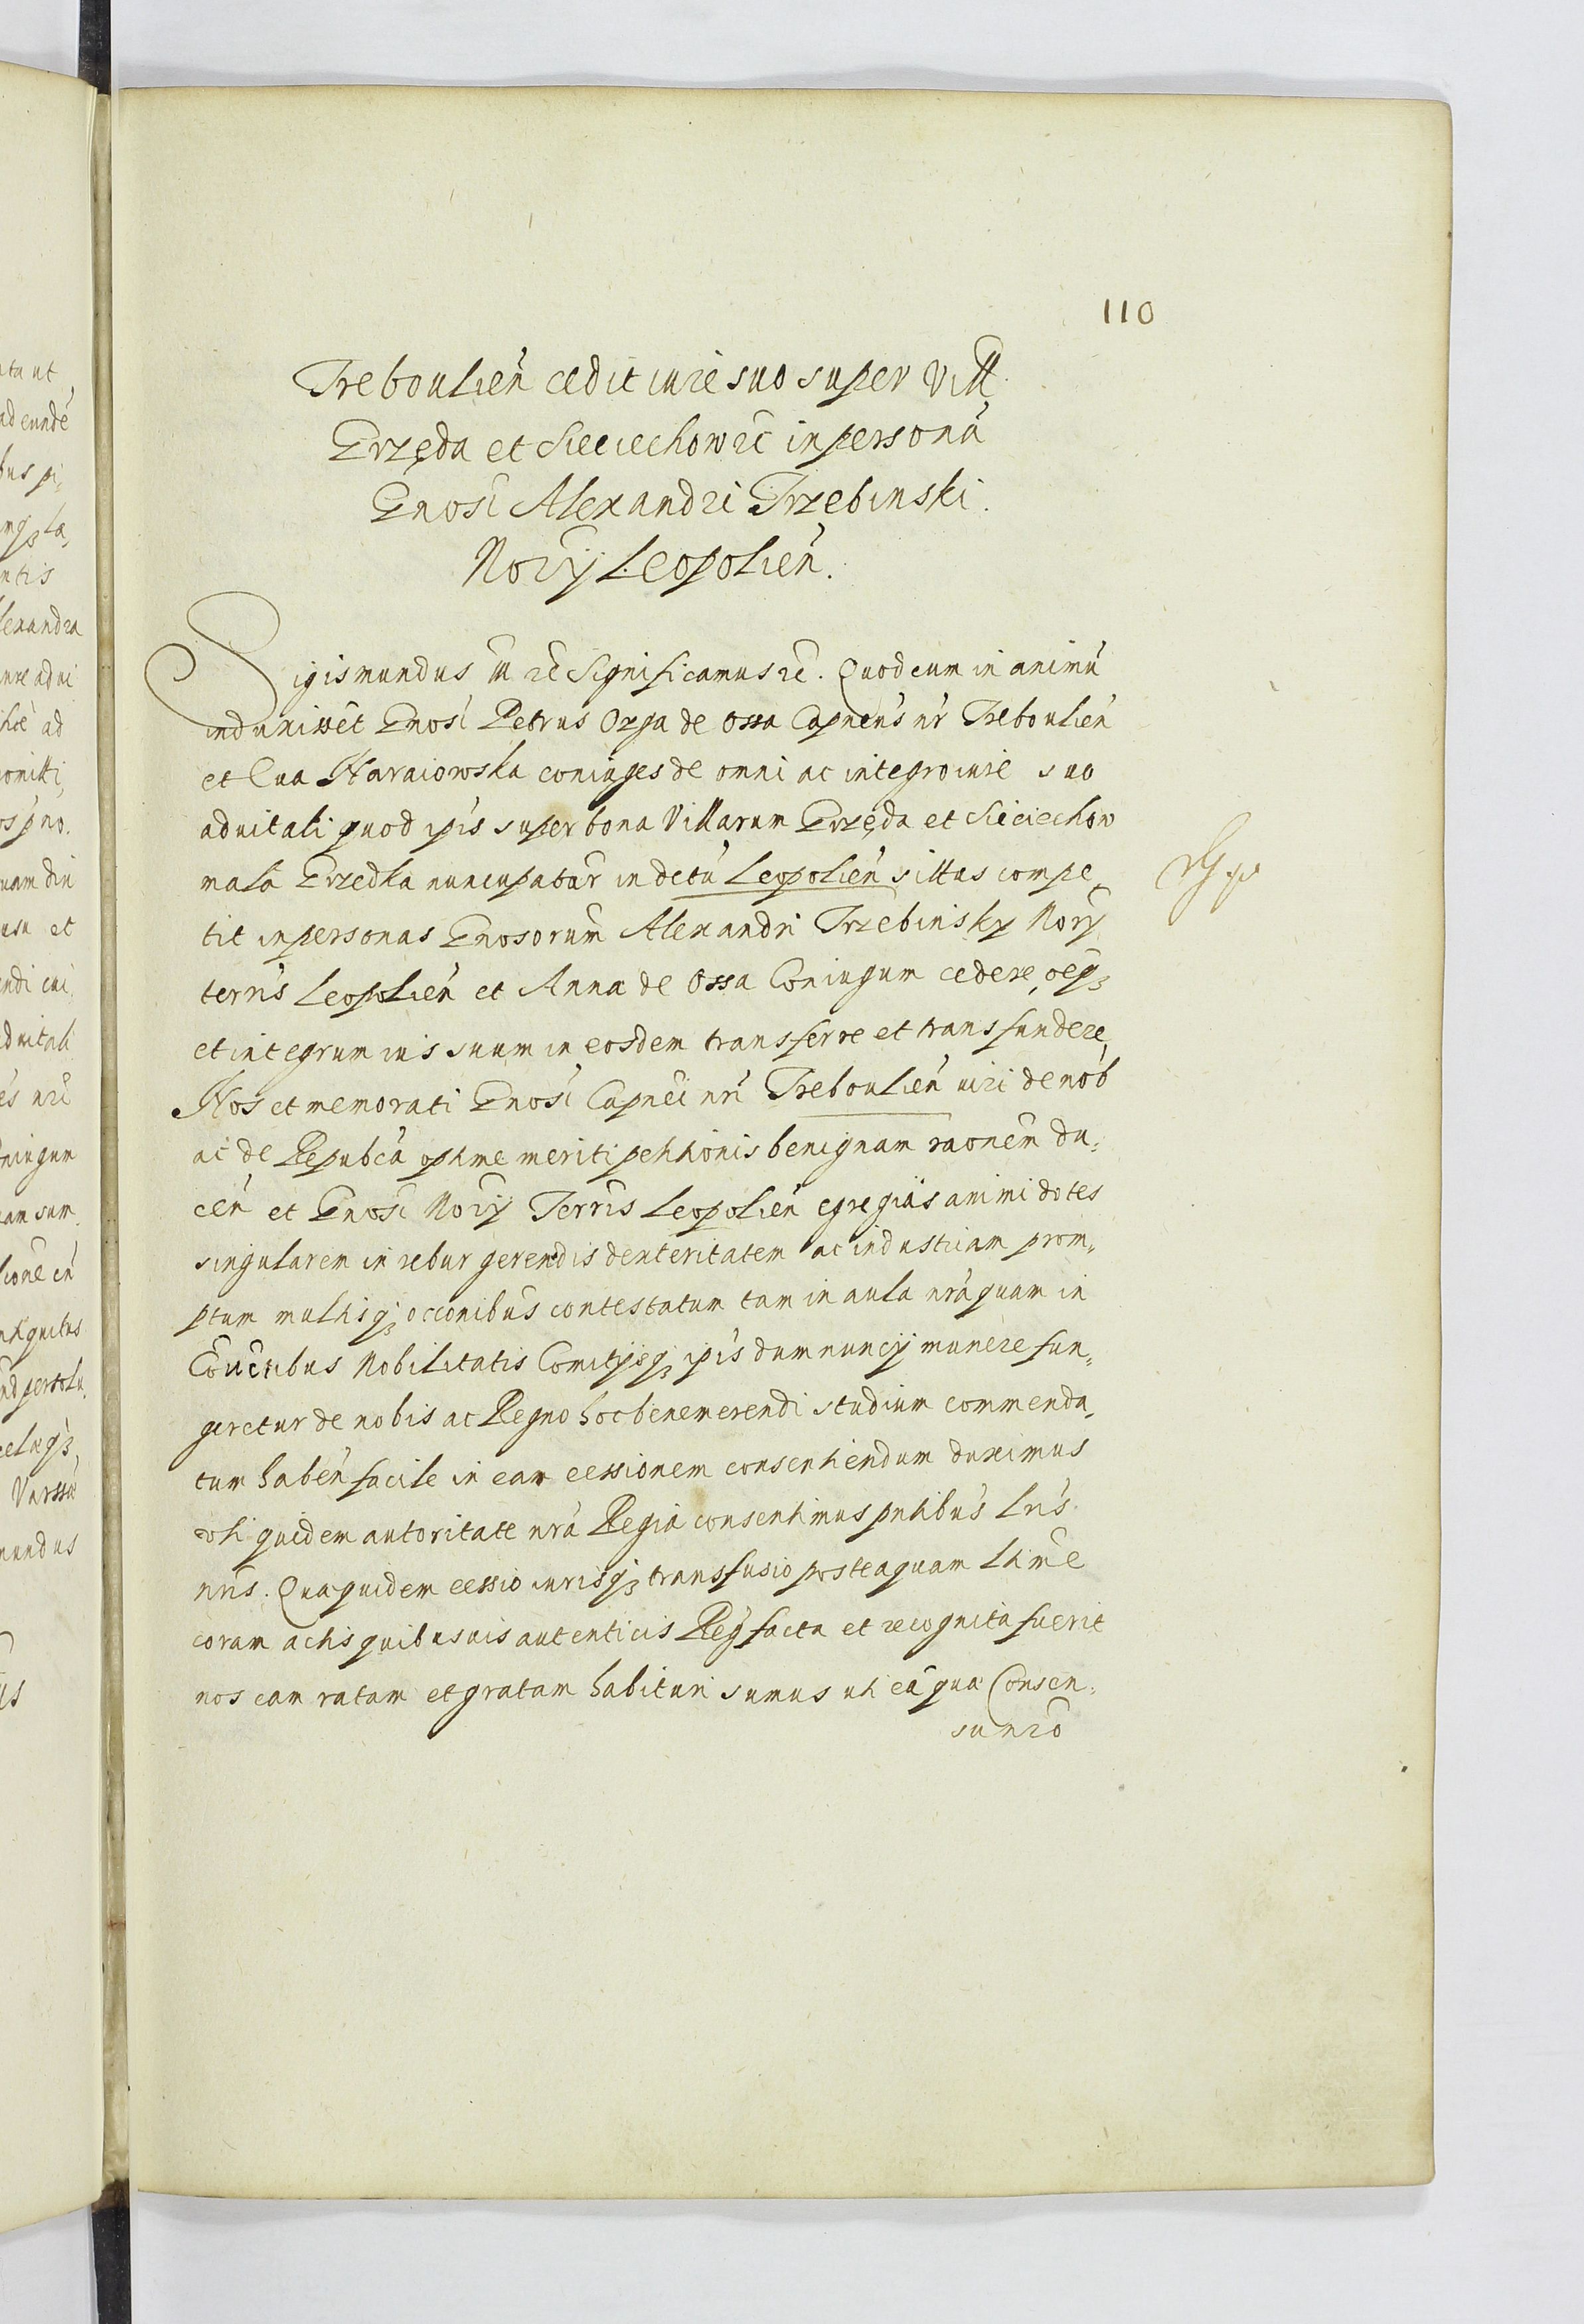 110
Treboulien̄ cedit iure suo super Vill
Grzęda et Sieciechow 2c in personā
Gnosi Alexandri Trzebinski.
Norÿ Leopolien̄.
Sigismundus III 2c Significamus 2c. Quod cum in animū
induxisset Gnosi Petrus Ozga de Ossa Capneūs nr̄ Treboulien̄
et Eua Naraiowska coniuges de omni ac integro iure suo
aduitali quod ipīs super bona Villarum Grzęda et Sieciechow
mala Grzedka nuncupatar in dctū Leopolien̄ sittas compe,
tit in personas Gnosorum Alexandri Trzebinsky Norÿ
terrīs Leopolien̄ et Anna de Ossa Coniugum cedere, oēq3
et integrum ius suum in eosdem transferre et transfundere,
Nos et memorati Gnosi Capnei nrī Treboulien̄ uiri de nob̄
ac de Repubcā optime meriti petitionis benignam raōnem du,
cen̄ et Gnosi Norÿ Terrīs Leopolien̄ egregias animi dotes
singularem in rebur gerendis dexteritatem ac industriam prom,
ptum multisq3 occōnibus contestatum tam in aula nrā quam in
Cōuentibus Nobilitatis Comitÿsq3 ipīs dum nuncÿ munere fun,
geretur de nobis ac Regno hoc benemerendi studium commenda,
tum haben̄ facile in eam cessionem consentiendum duximus
uti quidem autoritate nrā Regia consentimus pntibus Lrīs
nrīs. Qua quidem cessio iurisq3 transfusio posteaquam Ltime
coram actis quibusuis autenticis Reg facta et recognita fuerit
nos eam ratam et gratam habituri sumus uti eā qua Consen,
su nrō